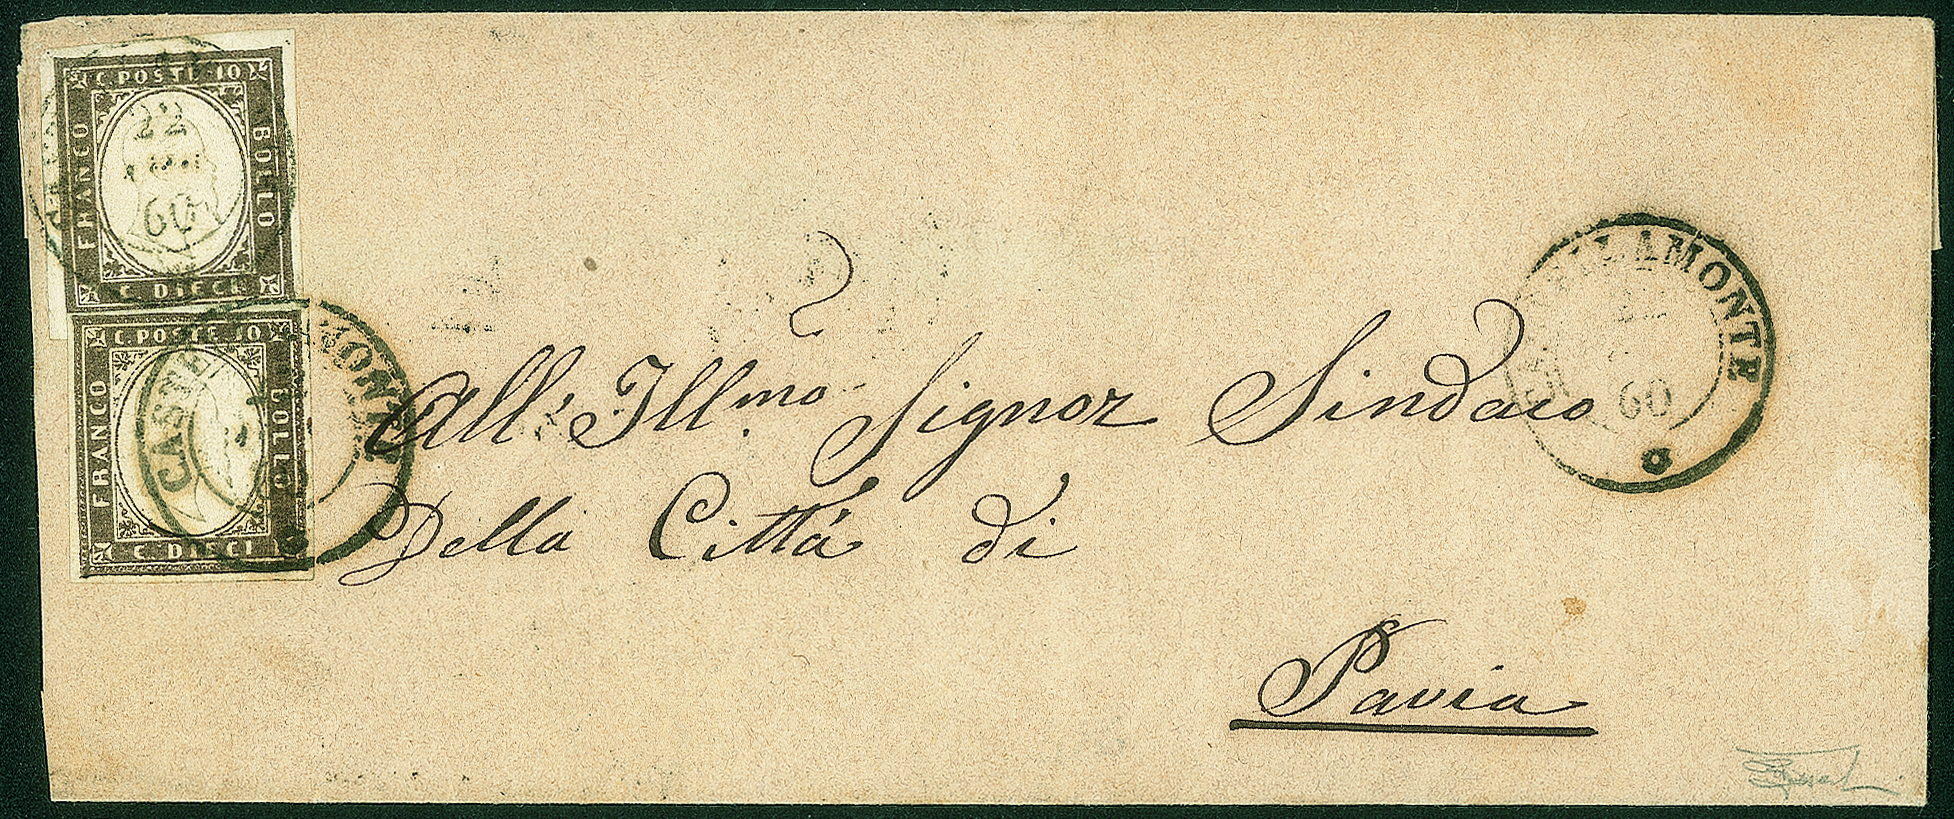 C. POSTE 10
FRANCO
BOLLO
C. DIECI
22
60
C. POSTE 10
FRANCO
BOLLO
C. DIECI
AMONTE
60
All' Ill.mo Signor Sindaco
Della Città di
Pavia